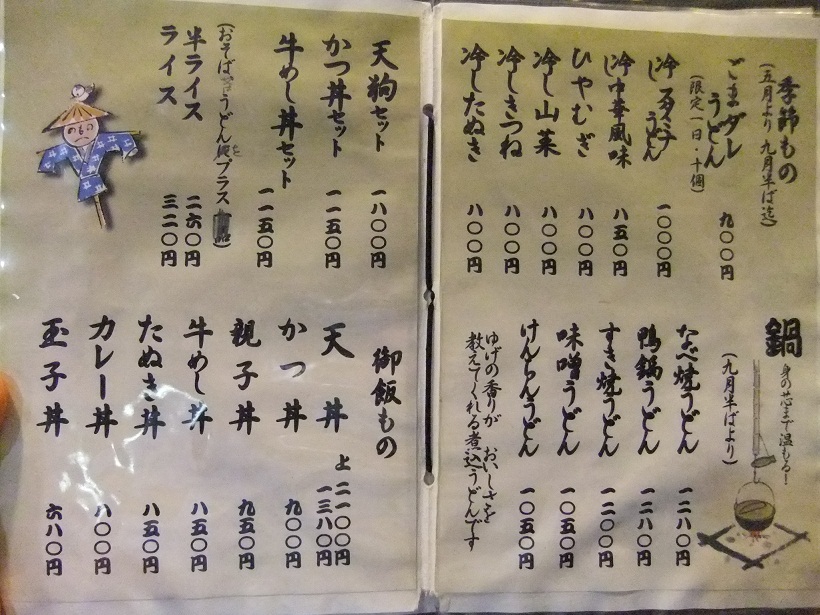 季節もの
(五月より 九月半ば迄)
ごまダレ
うどん
九〇〇円
(限定一日・十個)
冷し
うどん
一〇〇〇円
冷し中華風味
八五〇円
ひやむぎ
八〇〇円
冷し山菜
八〇〇円
冷しきつね
八〇〇円
冷したぬき
八〇〇円
鍋
身の芯まで温もる!
(九月半ばより)
なべ焼うどん
一二八〇円
鴨鍋うどん
一二八〇円
すき焼うどん
一二〇〇円
味噌うどん
一〇五〇円
けんちんうどん
一〇五〇円
ゆげの香りが おいしさを
教えてくれる煮込うどんです
天狗セット
一八〇〇円
かつ丼セット
一一五〇円
牛めし丼セット
一一五〇円
(おそば うどん プラス
半ライス
二六〇円
ライス
三二〇円
御飯もの
天丼
上 二一〇〇円
一三八〇円
かつ丼
九〇〇円
親子丼
九五〇円
牛めし丼
八五〇円
たぬき丼
八五〇円
カレー丼
八〇〇円
玉子丼
六八〇円